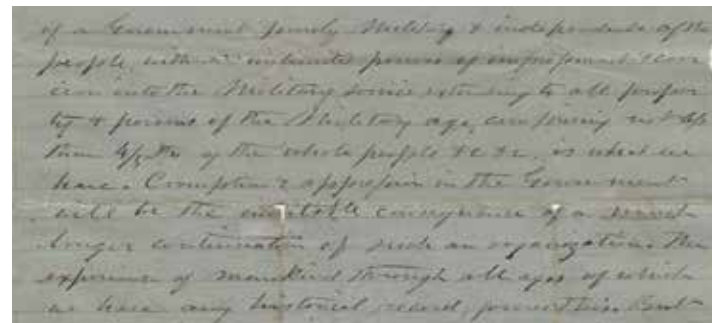 of a Government purely Military & independent of the
people, with an unlimited power of impressment & coer
cion into the Military service extending to all proper
ty & persons of the Military age, comprising not less
than 4/5ths of the whole people &c &c, is what we
have. Corruption & oppression in the Government
will be the inevitable consequence of a much
longer continuation of such an organization. The
experience of mankind through all ages of which
we have any historical record, proves this. But